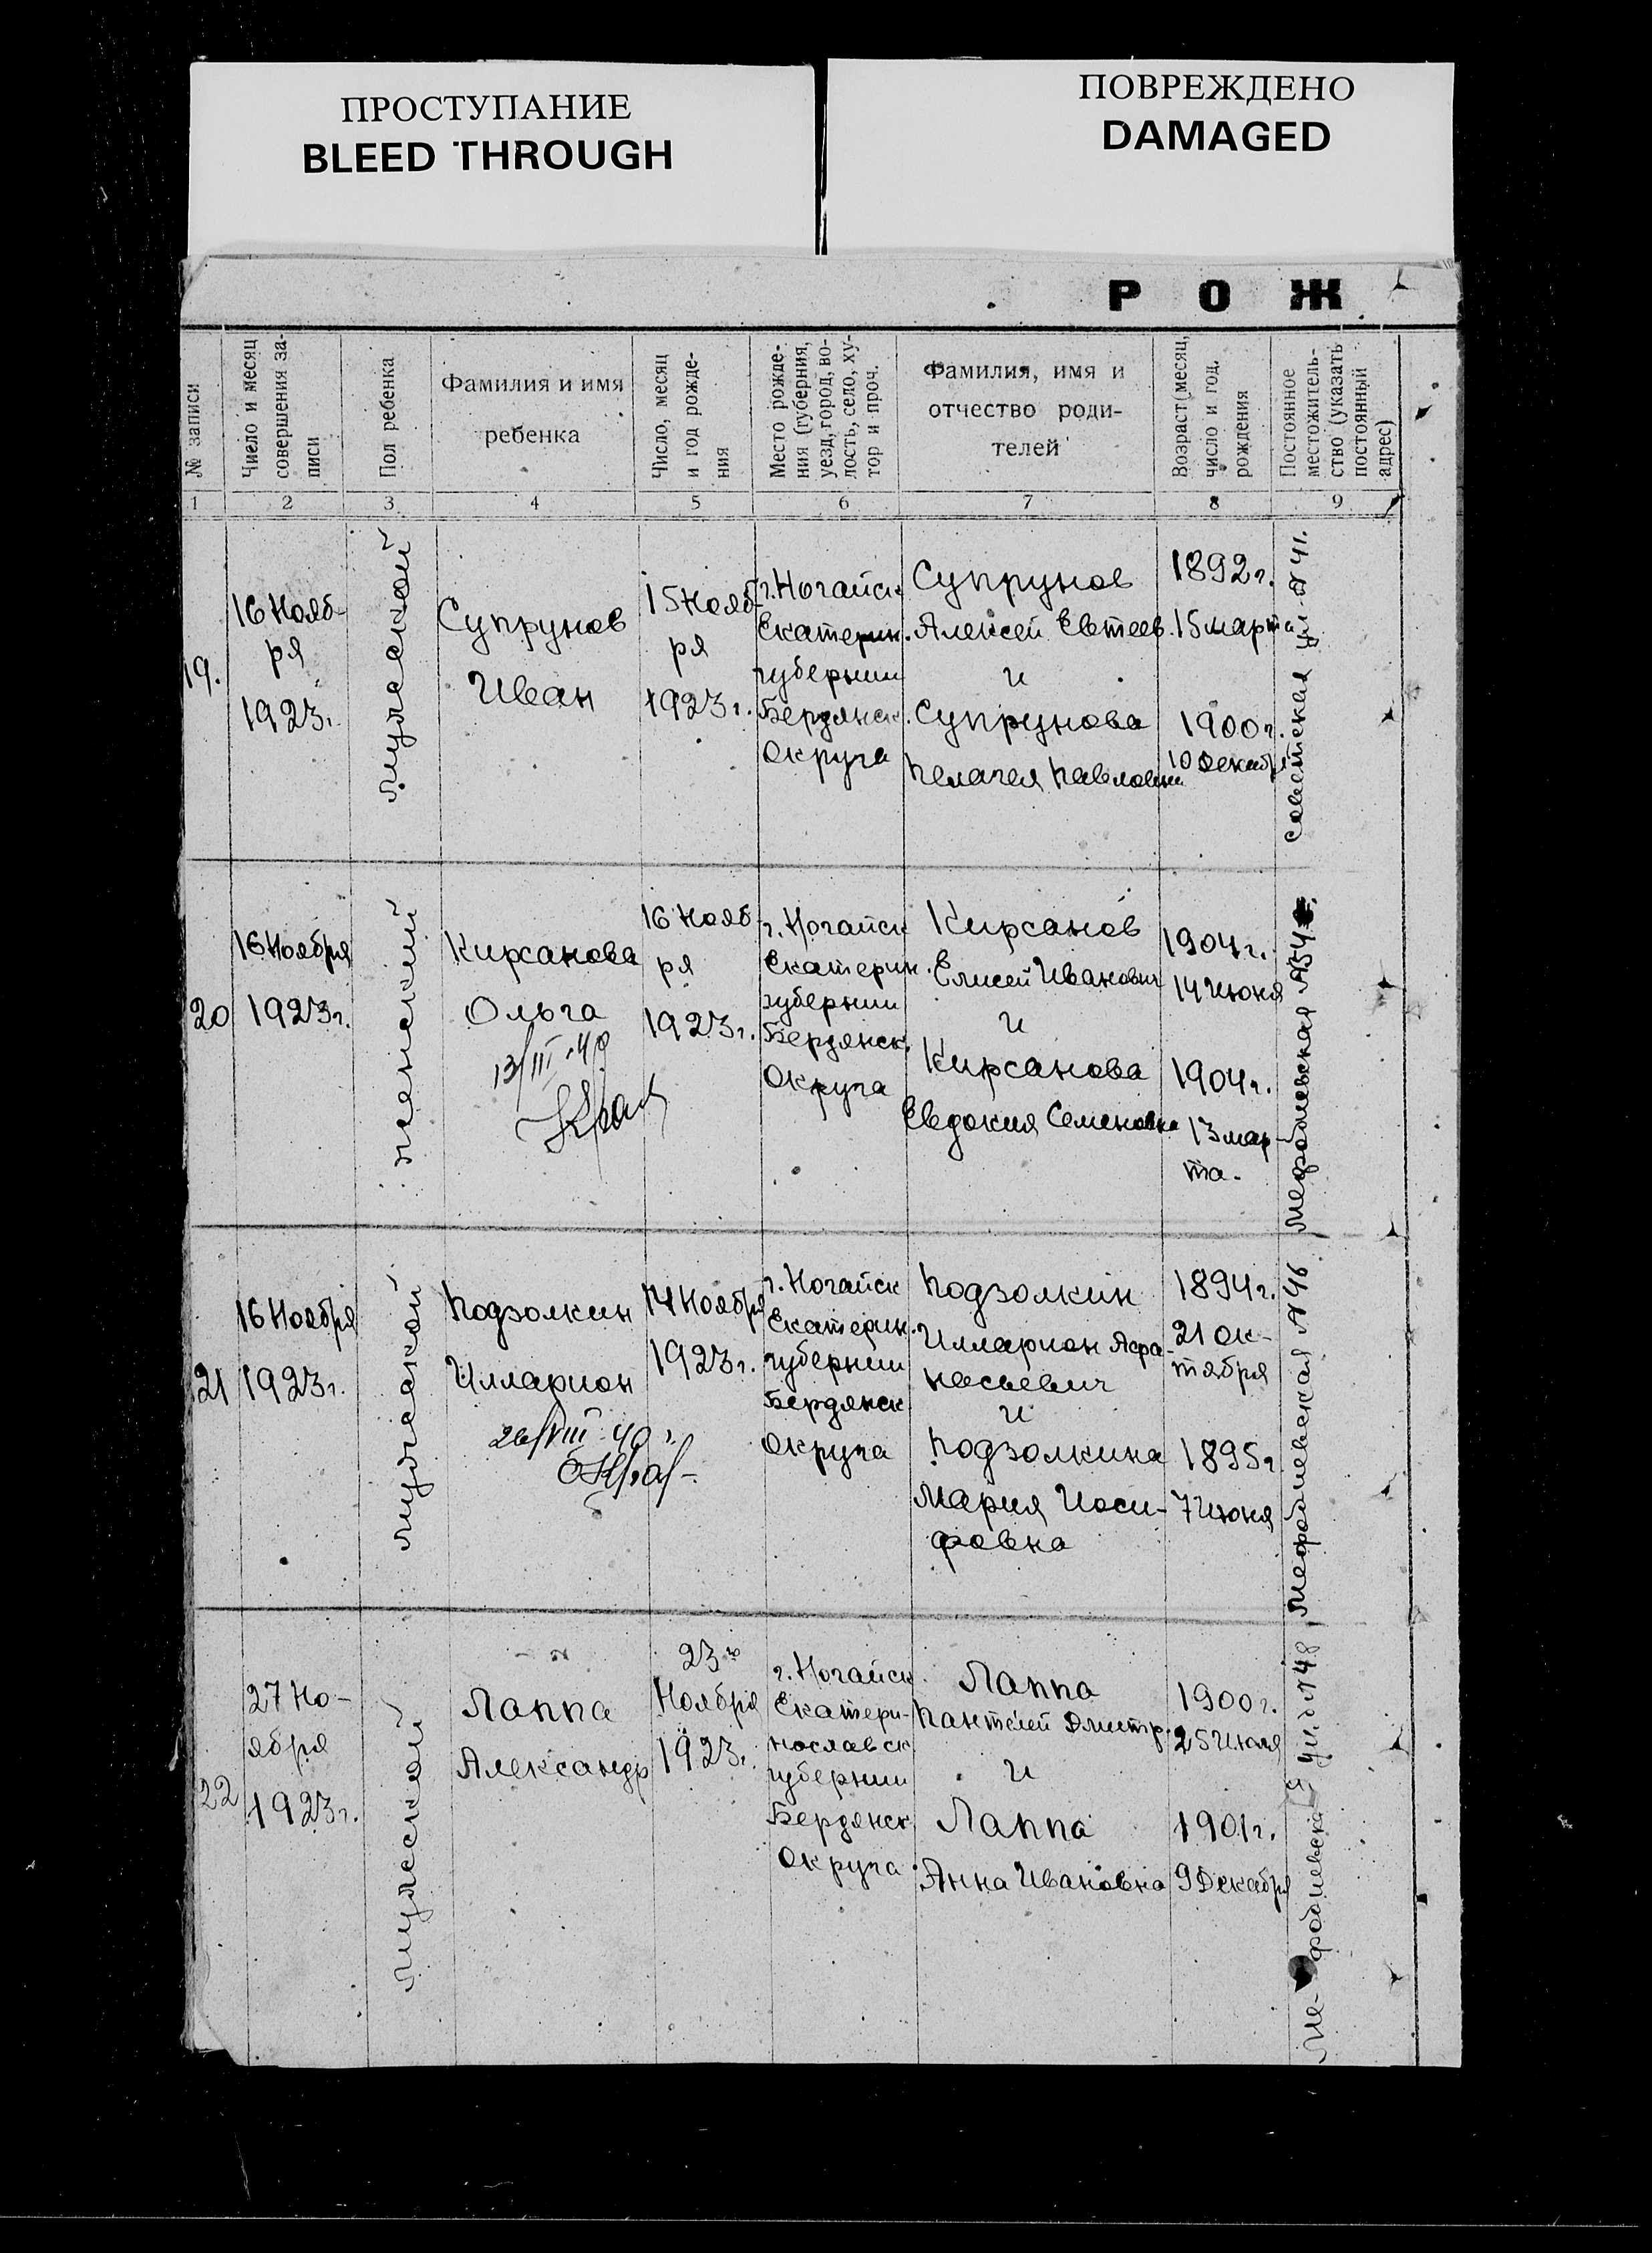 ПРОСТУПАНИЕ
BLEED THROUGH
ПОВРЕЖДЕНО
DAMAGED
Р О Ж
№ записи
Число и месяц
совершения за-
писи
Пол ребенка
Фамилия и имя
ребенка
Число, месяц
и год рожде-
ния
Место рожде-
ния (губерния,
уезд, город, во-
лость, село, ху-
тор и проч.
Фамилия, имя и
отчество роди-
телей
Возраст (месяц,
число и год,
рождения
Постоянное
местожитель-
ство (указать
постоянный
адрес)
1 2 3 4 5 6 7 8 9
19.
16 Нояб-
ря
1923г.
мужеский
Супрунов
Иван
15 Нояб-
ря
1923г.
г. Ногайск
Екатерин.
губернии
Бердянск.
Округа
Супрунов
Алексей Евтеев.
и
Супрунова
Пелагея Павловна
1892г.
15 марта
1900г.
10 Декабря
Советская ул. № 41.
20
16 Ноября
1923г.
женский
Кирсанова
Ольга
13/III-40
16 Нояб-
ря
1923г.
г. Ногайск
Екатерин.
губернии
Бердянск.
Округа
Кирсанов
Елисей Иванович
и
Кирсанова
Евдокия Семеновна
1904г.
14 Июня
1904г.
13 мар-
та.
Мефодиевская №54
21
16 Ноября
1923г.
мужеский
Подзолкин
Илларион
26/VIII-40г.
14 Ноября
1923г.
г. Ногайск
Екатерин.
губернии
Бердянск
Округа
Подзолкин
Илларион Афа-
насьевич
и
Подзолкина
Мария Иоси-
фовна
1894г.
21 Ок-
тября
1895г
7 Июня
Мефодиевская № 46
22
27 Но-
ября
1923г.
мужеский
Лаппа
Александр
23го
Ноября
1923г.
г. Ногайск
Екатери-
нославск
губернии
Бердянск
Округа
Лаппа
Пантелей Дмитр.
и
Лаппа
Анна Ивановна
1900г.
25 Июля
1901г.
9 Декабря
Ме-фодиевская ул. №48